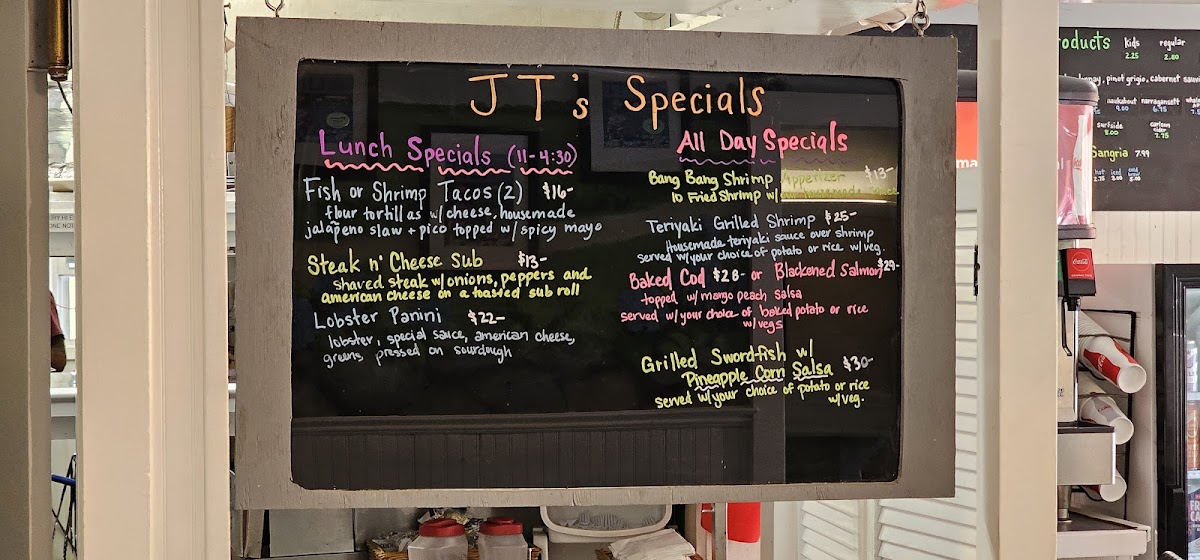 JT's Specials
Lunch Specials (11-4:30)
Fish or Shrimp Tacos (2) $16-
flour tortillas w/ cheese, housemade
jalapeno slaw + pico topped w/ spicy mayo
Steak n' Cheese Sub $13-
shaved steak w/ onions, peppers and
american cheese on a toasted sub roll
Lobster Panini $22-
lobster, special sauce, american cheese,
greens pressed on sourdough
All Day Specials
Bang Bang Shrimp Appetizer $13-
10 Fried Shrimp w/ our housemade sauce
Teriyaki Grilled Shrimp $25-
Housemade teriyaki sauce over shrimp
served w/ your choice of potato or rice w/ veg.
Baked Cod $28- or Blackened Salmon $29-
topped w/ mango peach salsa
served w/ your choice of baked potato or rice
w/ vegs
Grilled Swordfish w/
Pineapple Corn Salsa $30-
served w/ your choice of potato or rice
w/ veg.
oducts kids regular
2.25 2.80
pinot grigio, cabernet sauvi
narragansett
9.00 6.75
surfside carlson cider
8.00 7.75
Sangria 7.99
hot iced
Coca-Cola